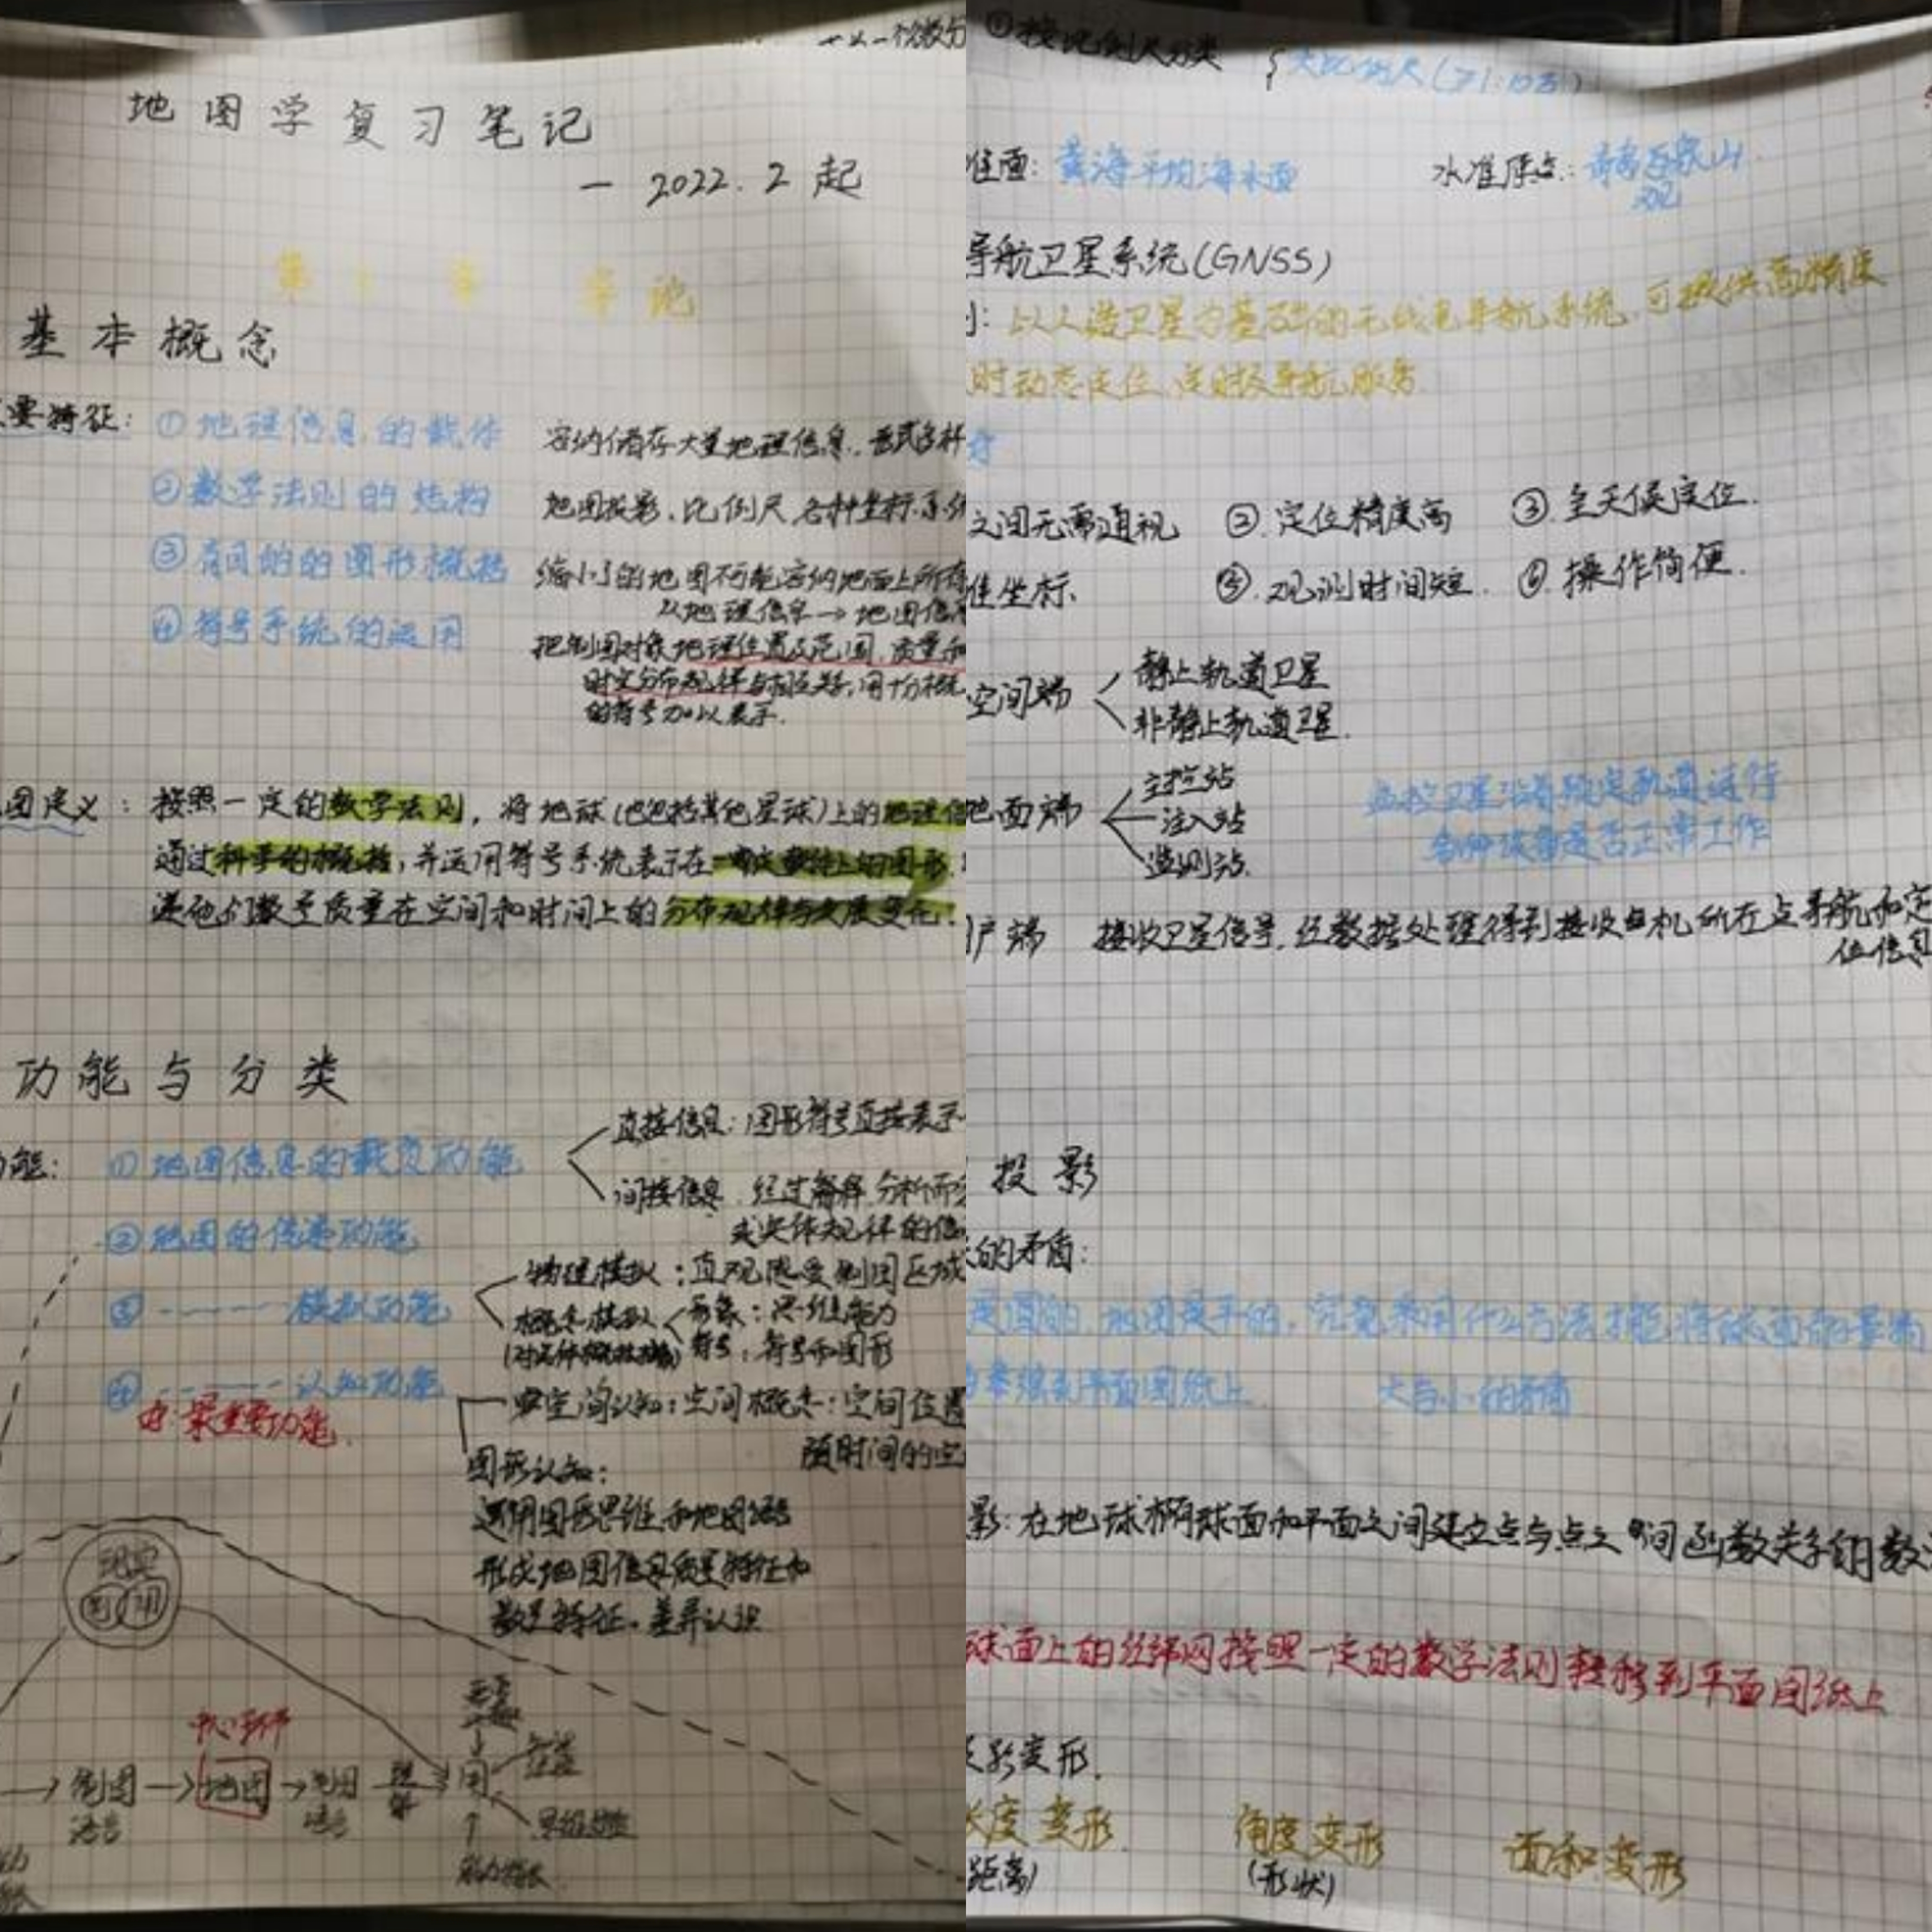 地图学复习笔记
— 2022.2 起
第1章 导论
基本概念
要特征:
①地理信息的载体
容纳储存大量地理信息,
②数学法则的结构
地图投影、比例尺、各种坐标系
③有目的的图形概括
缩小了的地图不能容纳地面上所有
从地理信息→地图信
④符号系统的运用
把制图对象地理位置及范围,质量和
时空分布规律与相互关系,用十分概
的符号加以表示.
图定义:按照一定的数学法则,将地球(也包括其他星球)上的地理信
通过科学的概括,并运用符号系统表示在一定载体上的图形,
递他们数量质量在空间和时间上的分布规律与发展变化.
功能与分类
能:
①地图信息的载负功能
直接信息:图形符号直接表示
间接信息 经过解释 分析而
或实体规律的信
②地图的传递功能
③ ------ 模拟功能
物理模拟:直观感受制图区域
概念模拟
形象:思维能力
符号:符号和图形
④ ------ 认知功能
最重要功能.
空间认知:空间概念:空间位置
随时间的空
图形认知:
运用图形思维和地图语言
形成地图信息质量特征和
数量特征、差异认识
现实
制图
语言
→ 地图 →
用
语言
①按比例尺分类
大比例尺(≥1:10万)
准面:黄海平均海水面
水准原点:青岛观象山
导航卫星系统(GNSS)
以人造卫星为基础的无线电导航系统,可提供高精度
时动态定位、定时及导航服务
之间无需通视 ②.定位精度高 ③.全天候定位.
坐标、 ⑤.观测时间短. ⑥操作简便.
空间端
静止轨道卫星
非静止轨道卫星.
地面端
主控站
注入站
监测站.
监控卫星沿着预定轨道运行
各种设备是否正常工作
户端 接收卫星信号,经数据处理得到接收机所在点导航和定
位信息
投影
的矛盾:
是圆的,地图是平的,究竟采用什么方法才能将球面的景物
到平面图纸上 大与小的矛盾
影:在地球椭球面和平面之间建立点与点之间函数关系的数
球面上的经纬网按照一定的数学法则转移到平面图纸上
投影变形.
长度变形 角度变形 面积变形
距离) (形状)